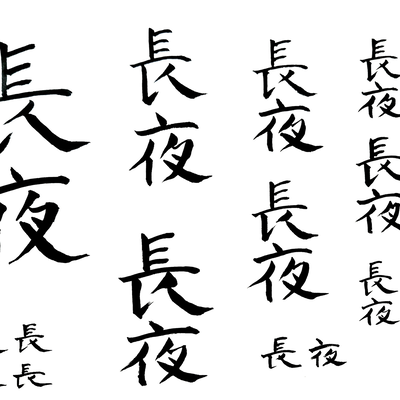 長夜
長
長
長夜
長夜
長夜
長夜
長夜
長夜
長夜
長夜